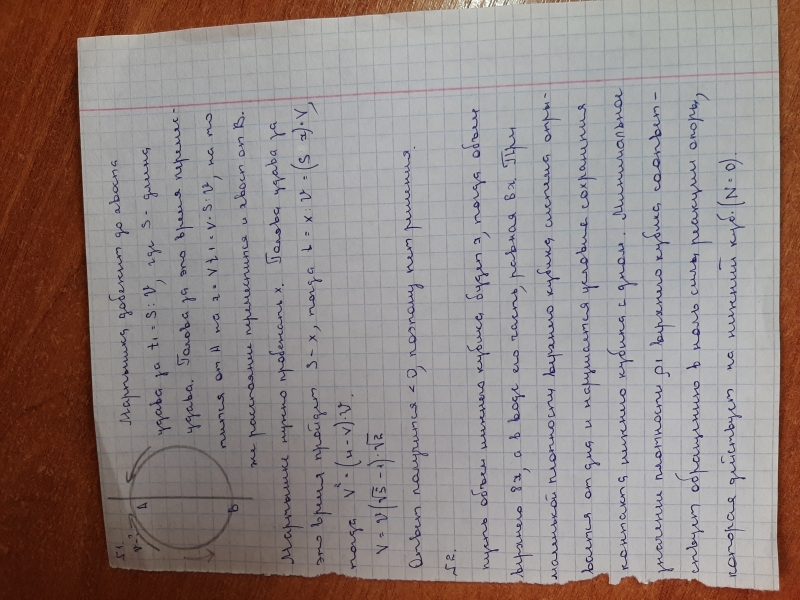 №1.
A
B
Мартышка добежит до хвоста
удава за t1 = S : v, где S - длина
удава. Голова за это время перемес-
тится от A на z = Vt1 = V·S : v, на то
же расстояние переместится и хвост от B.
Мартышке нужно пробежать x. Голова удава за
это время пройдет S - x, тогда t = x : v = (S - x) : V,
тогда V² = (4 - V)·v.
V = v(√5 - 1) : √2
Ответ получится < 0, поэтому нет решения.
№2.
пусть объем нижнего кубика будет x, тогда объем
верхнего 8x, а в воде его часть, равная 6x. При
маленькой плотности верхнего кубика система отры-
вается от дна и нарушается условие сохранения
контакта нижнего кубика с дном. Минимальное
значение плотности ρ1 верхнего кубика соответ-
ствует обращению в ноль силы реакции опоры,
которая действует на нижний куб. (N = 0).